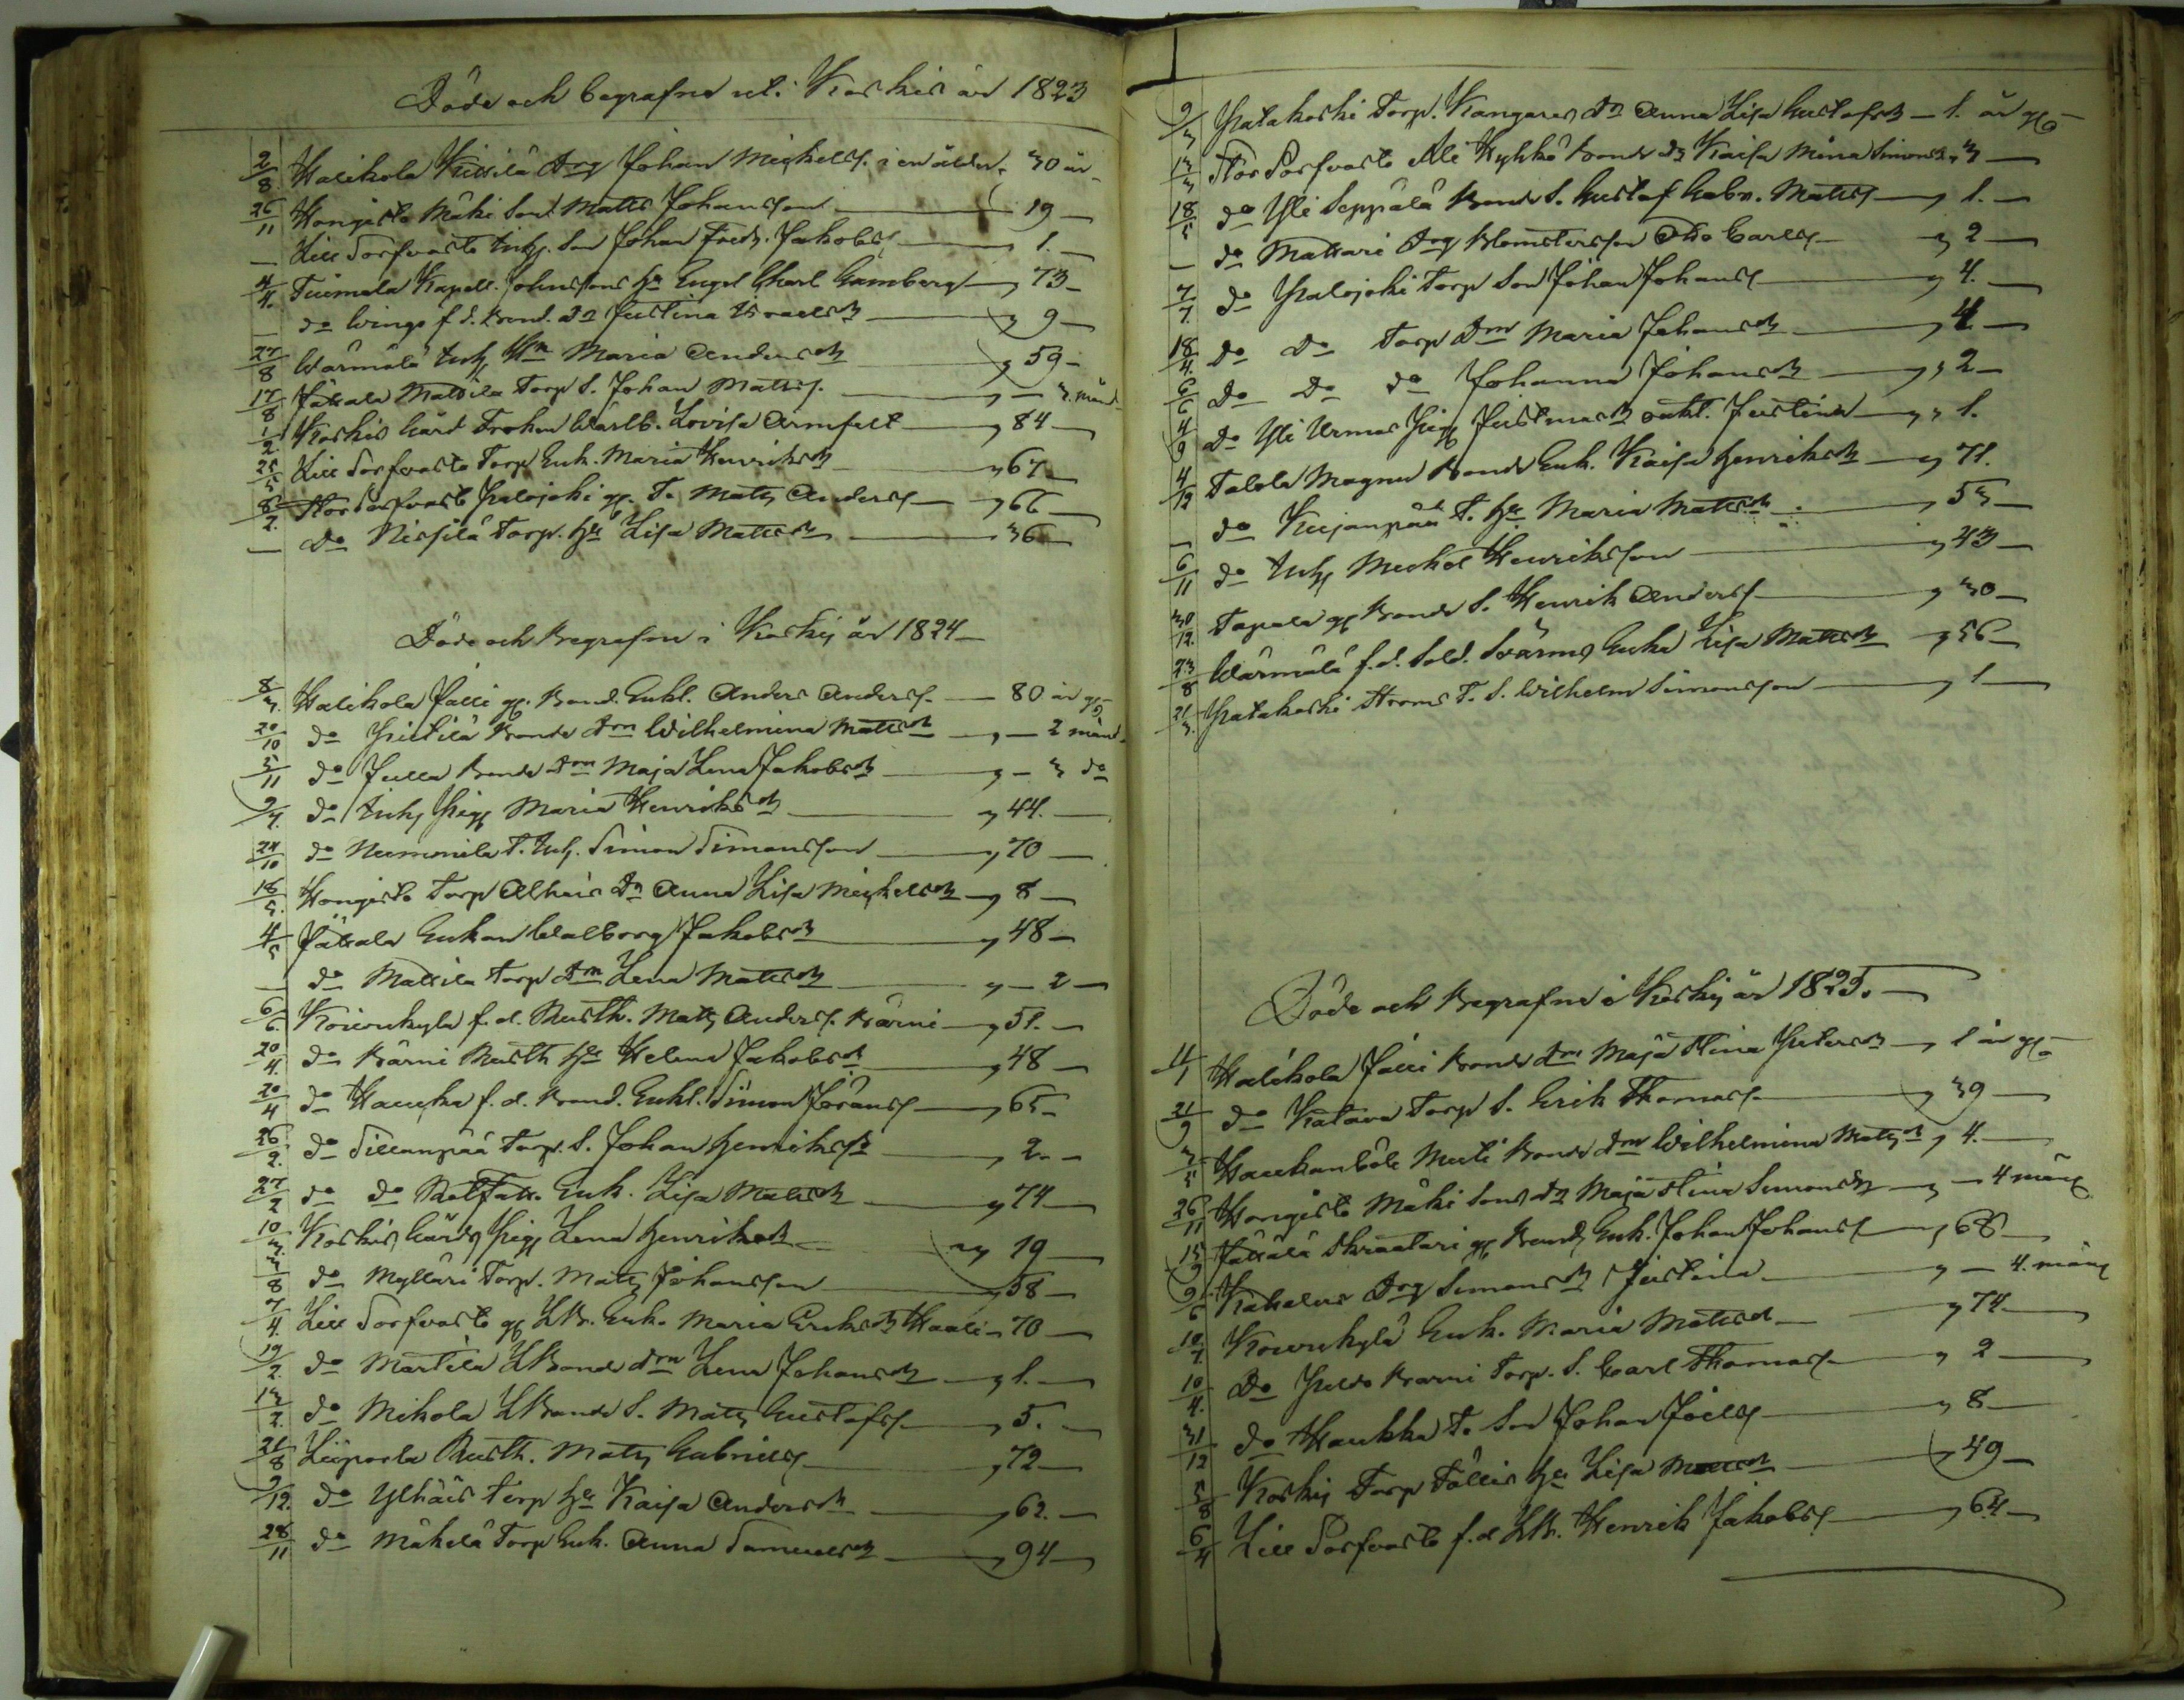 Döde och begrafne uti Koskis år 1823
2/8 Halikola Kissilä Drg Johan Michelss. i en ålder 30 år
26/11 Hongisto Mäki Son Matts Johansson — 19 —
— Lill Sorfvasto Inhs. Son Johan Fredr. Jakobss — 1. —
4/4. Tuimala Kapell. Johnssons hu Engel Charl Gamberg — 73 —
— do Wingo f. d. Bond. dr Justina Israelsdr — 9 —
27/8 Wärmälä Inhs Hn Maria Andersdr — 59 —
17/8 Jättala Mattila Torp S. Johan Mattss. — 3. mån
1/2 Koskis Gård Fröken Wälb. Lovisa Armfelt — 84 —
25/5 Lill Sorfvasto Torp Enk. Maria Henriksdr — 67 —
8/2. Stor Sorfvasto Palojoki gl. T. Matts Anderss — 66 —
— do Nissilä Torp. hu Lisa Mattsdr — 36 —
Döde och Begrafne i Koskis år 1824 —
8/3. Halikola Jalli gl. Bond. Enkl. Anders Anderss. — 80 år gl
20/10 do Pietilä Bonde Drn Wilhelmina Mattsdr — 2 mån
5/11 do Julla Bonde Drn Maja Lena Jakobsdr — 3 do
9/7. do Inhs Pig Maria Henriksdr — 44. —
24/10 do Nummila T. Inh. Simon Simonsson — 70 —
18/5. Hongisto Torp Alhais Dr Anna Lisa Michelsdr — 8 —
4/5 Jättala Enkan Walborg Jakobsdr — 48 —
— do Mattila Torp Drn Lena Mattsdr — 2 —
6/6. Koiwukylä f. d. Rusth. Matts Anderss. Bärni — 51. —
20/4. do Bärni Rusth hu Helena Jakobsdr — 48 —
20/4 do Haucka f. d. Bond. Enkl. Simon Jöranss — 65 —
26/2. do Sillanpää Torp. S. Johan Henrikss — 2. —
27/2 do do Enk. Lisa Mattsdr — 74 —
10/3. Koskis Gårds Pig Lena Henriksdr — 19 —
3/8 do Myllari Torp. Matts Johansson — 58 —
7/4. Lill Sorfvasto gl LB. Enk. Maria Eriksdr Haali — 70 —
19/2. do Martila LBonde Drn Lena Johansdr — 1. —
13/2. do Mikola LBonde S. Matts Gustafss — 5. —
21/8 Liiporla Rusth. Matts Gabrielss — 72 —
9/12. do Ylhäis Torp hu Kaisa Andersdr — 62. —
28/11 do Mäkelä Torp Enk. Anna Samuelsdr — 94 —
9/3 Patakoski Torp. Kangares Dr Anna Lisa Gustafsdr — 1. år gl
13/3 Stor Sorfvasto Ali Kyhkö Bonde dr Kaisa Mina Simonsdr 3 —
18/5 do Yli Seppälä Bonde S. Gustaf Gabr. Mattss — 1. —
— do Mattari Drg Blomstersson Otto Carlss — 2 —
7/7. do Palojoki Torp Son Johan Johanss — 4. —
18/4. Do Do Torp Drn Maria Johansdr — 4. —
6/6 Do Do do Johanna Johansdr — 2 —
4/9 Do Yli Urmas Pig Justinas oäkt. Justina — 1.
4/12 Talola Magnu Bonde Enk. Kaisa Henriksdr — 71.
— do Kujanpää T. hu Maria Mattsdr — 53 —
6/11 do Inhs Michel Henriksson — 43 —
30/12. Tapala gl Bonde S. Henrik Anderss — 30 —
23/8 Wärmälä f. d. Sold. Swärms Enka Lisa Mattsdr — 56 —
21/3. Patakoski Ströms T. S. Wilhelm Simonsson — 1 —
Döde och Begrafne i Koskis år 1825. —
11/1 Halikola Jalli Bonde Drn Maja Stina Petersdr — 1 år gl
21/9 do Katava Torp S. Erik Thomass — 39 —
3/5 Haukanböle Muti Bonde Drn Wilhelmina Mattsdr, 4. —
26/11 Hongisto Mäki Sons Dr Maja Stina Simonsdr — 4 mån
15/9 Jättälä Skraatari gl Bonds Enk. Johan Johanss — 68 —
9/6 Drg Simonsdr Justina — 4. mån
10/7. Kowukylä Enk. Maria Mattsdr — 74 —
10/4. Do Peldo Barni Torp. S. Carl Thomass — 2 —
31/12 do Haukka T. Son Johan Joelss — 8 —
5/8 Koskis Torp Tallis hu Lisa Mattsdr — 49 —
6/4 Lill Sorfvasto f. d LB. Henrik Jakobss — 64 —